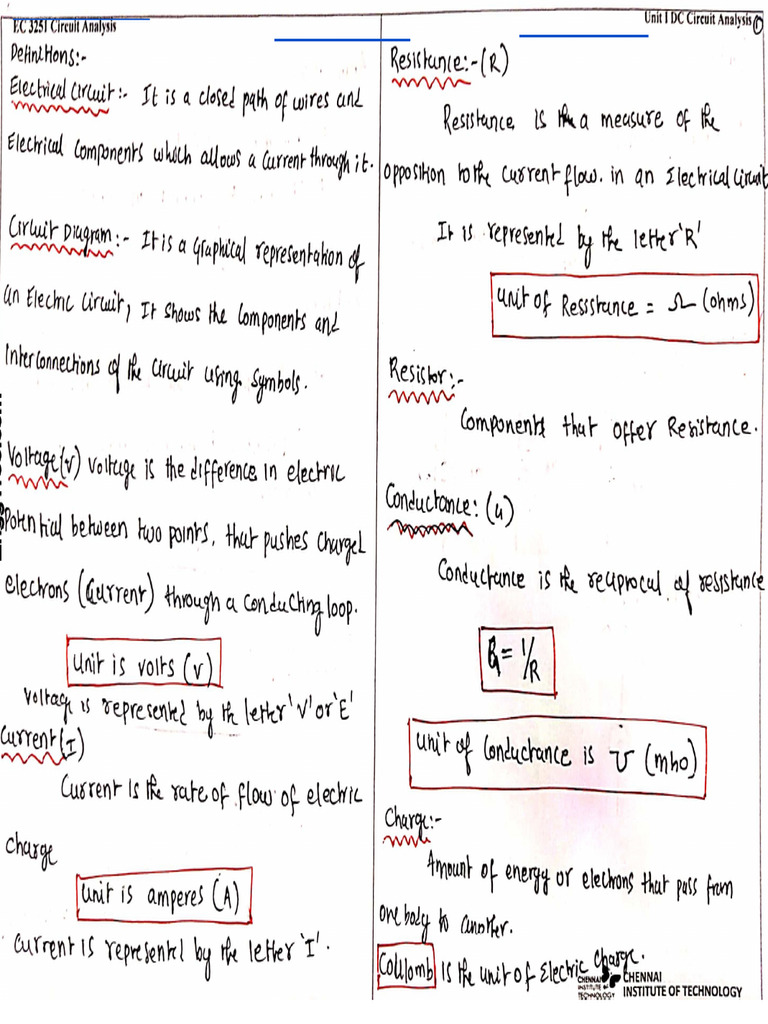 EC 3251 Circuit Analysis
Unit I DC Circuit Analysis
Definitions:-
Electrical Circuit:- It is a closed path of wires and
Electrical Components which allows a Current through it.
Circuit Diagram:- It is a graphical representation of
an Electric Circuit, It shows the Components and
Interconnections of the Circuit using Symbols.
Voltage(V) Voltage is the difference in electric
Potential between two points, that pushes charged
electrons (Current) through a conducting loop.
Unit is volts (V)
Voltage is represented by the letter 'V' or 'E'
Current (I)
Current is the rate of flow of electric
charge
Unit is amperes (A)
Current is represented by the letter 'I'.
Resistance:- (R)
Resistance is the a measure of the
opposition to the current flow. in an Electrical Circuit
It is represented by the letter 'R'
Unit of Resistance = Ω (ohms)
Resistor:-
Components that offer Resistance.
Conductance: (G)
Conductance is the reciprocal of resistance
G = 1/R
Unit of Conductance is ℧ (mho)
Charge:-
Amount of energy or electrons that pass from
one body to another.
Coulomb is the unit of Electric Charge.
CHENNAI
INSTITUTE OF
TECHNOLOGY
CHENNAI
INSTITUTE OF TECHNOLOGY